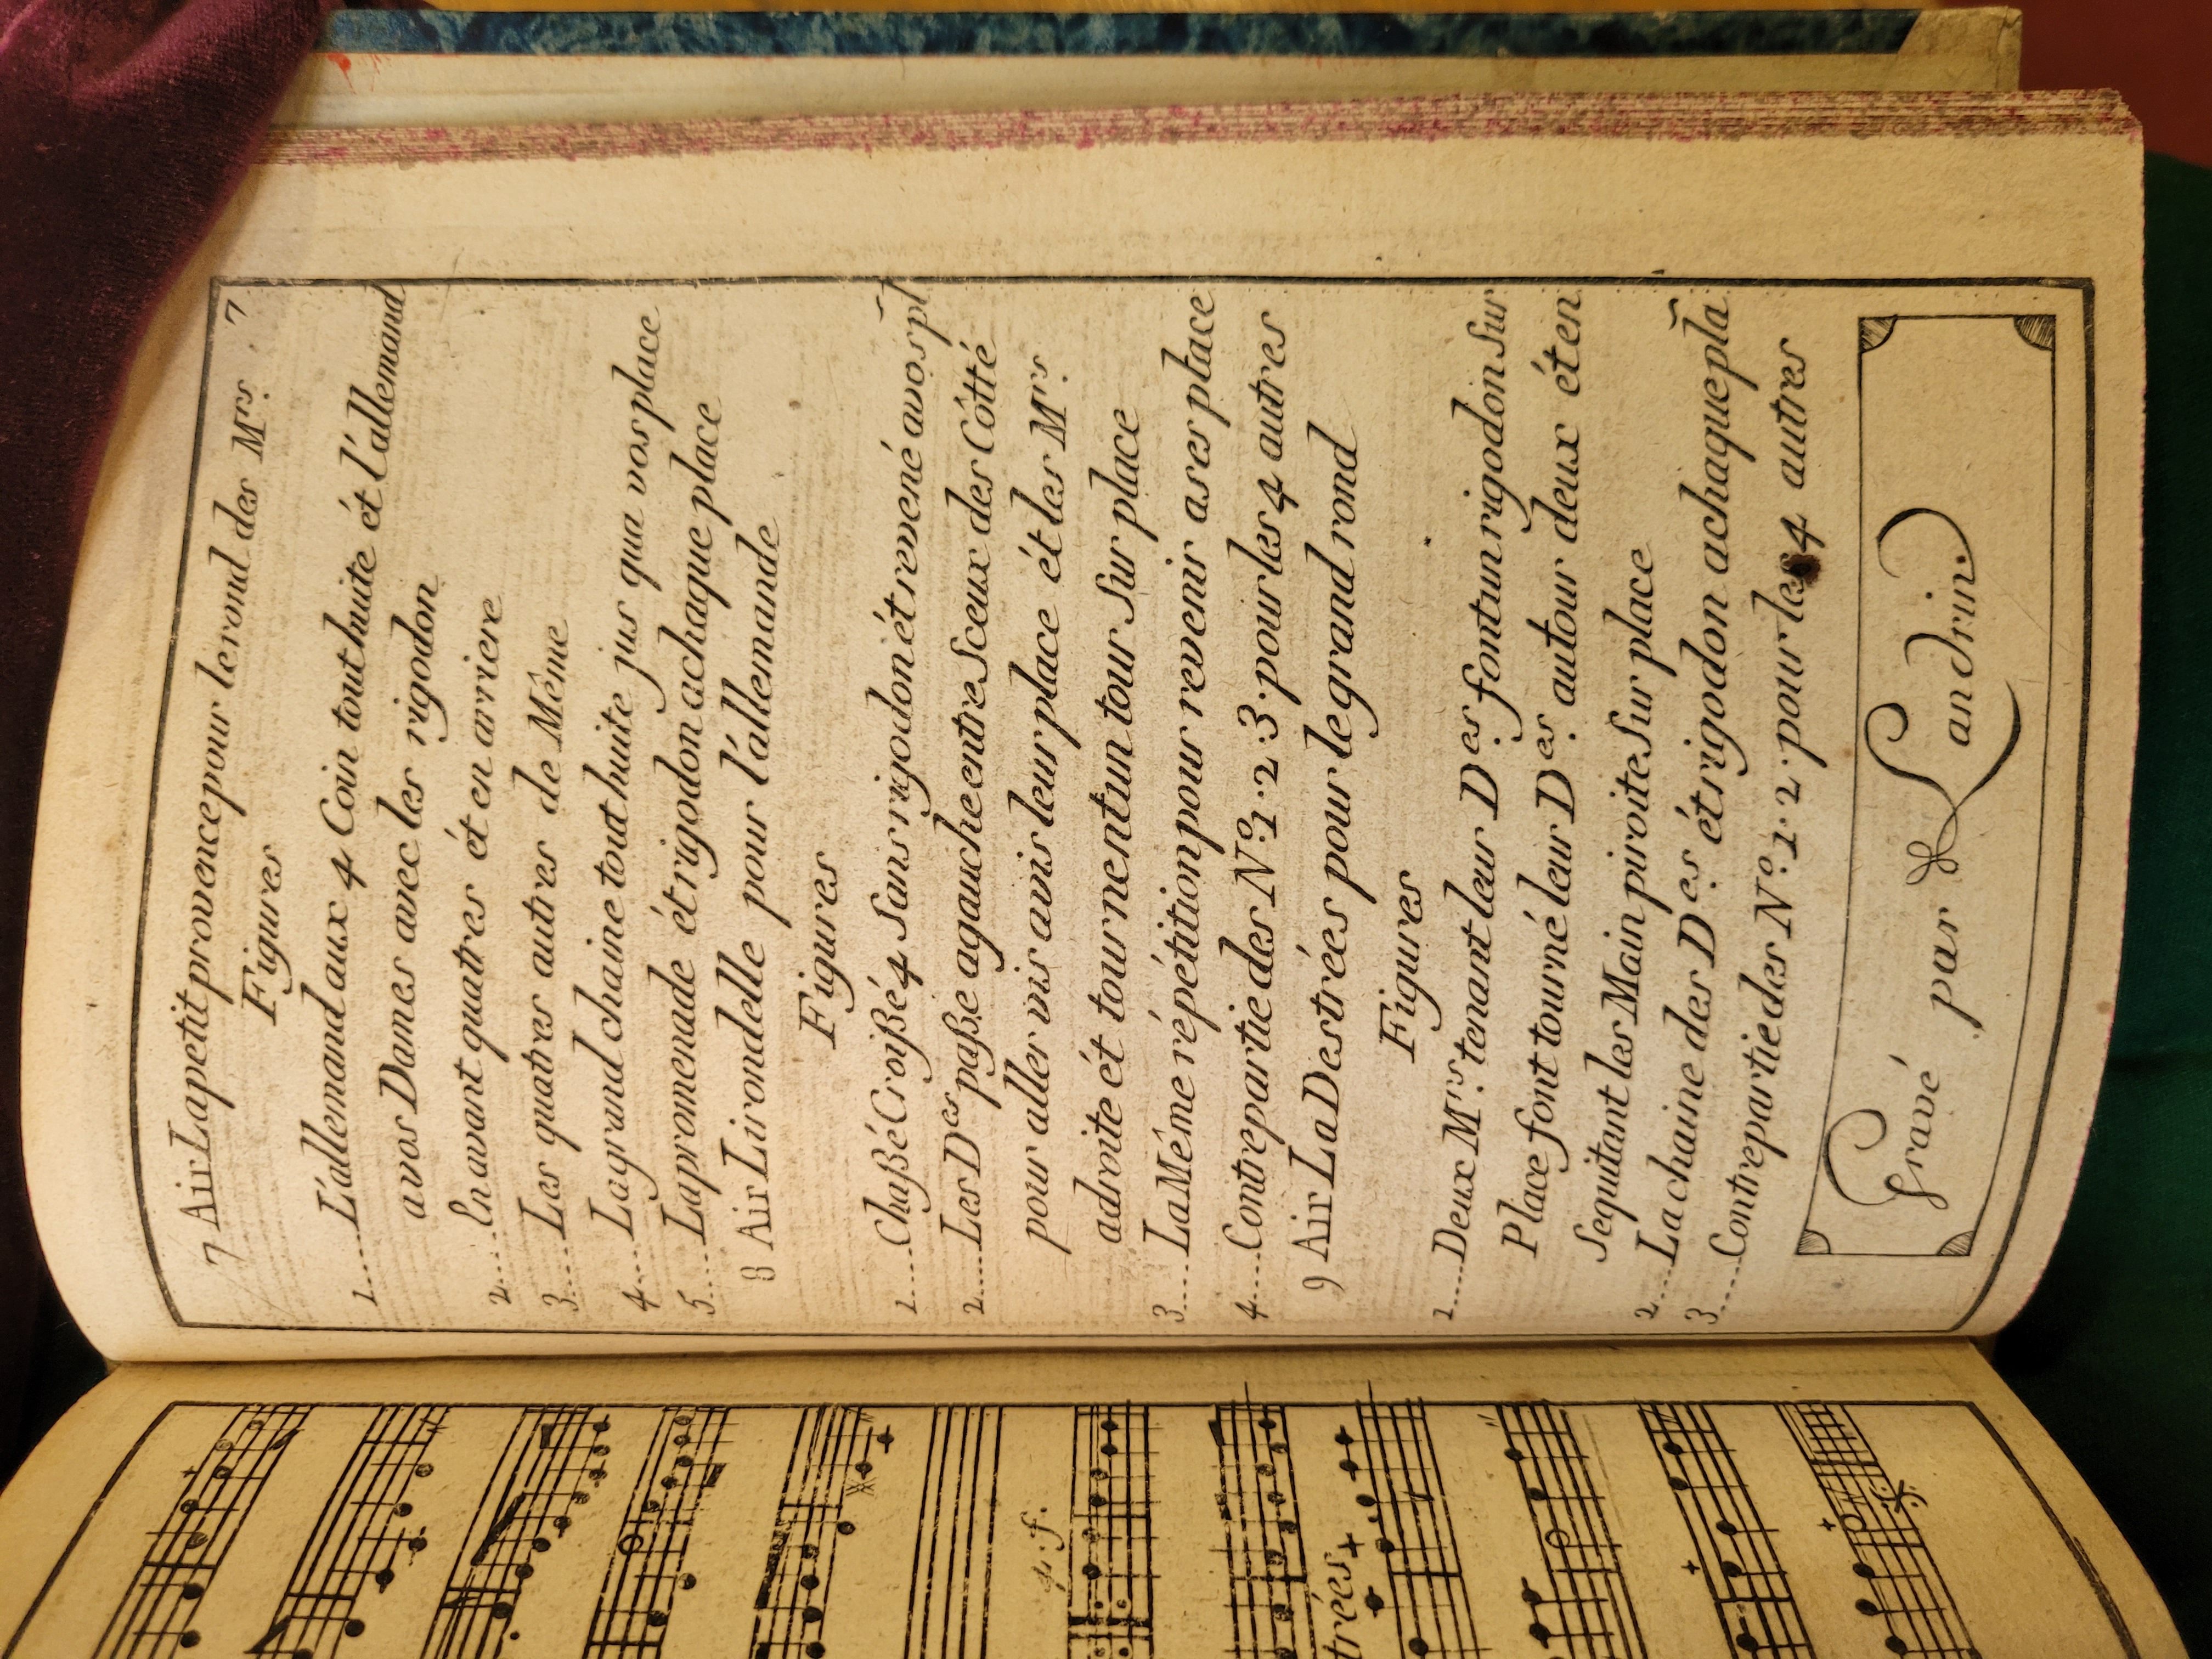 7
7 Air La petit provence pour le rond des Mrs.
Figures
1.....L'allemand aux 4 Coin tout huite ét l'allemand
a vos Dames avec les rigodon
2....En avant quatres ét en arriere
3....Les quatres autres de Même
4....La grand chaine tout huite jus qua vos place
5....La promenade ét rigodon a chaque place
8 Air Lirondelle pour l'allemande
Figures
1.....Chaßé Croißé 4 Sans rigodon ét revené a vos pl
2.....Les Des paße a gauche entre Sceux des Côtté
pour aller vis a vis leur place ét les Mrs.
a droite ét tournent un tour Sur place
3.....La Même répétition pour revenir a ses place
4.....Contre partie des No. 1. 2. 3. pour les 4 autres
9 Air La Destrées pour le grand rond
Figures
1.....Deux Mrs. tenant leur Des. font un rigodon Sur
Place font tourné leur Des. autour deux ét en
Se quitant les Main piroite Sur place
2....La chaine des Des. ét rigodon a chaque pla
3.....Contre partie des No. 1. 2. pour les 4 autres
Gravé par Landrin.
p. f.
trées